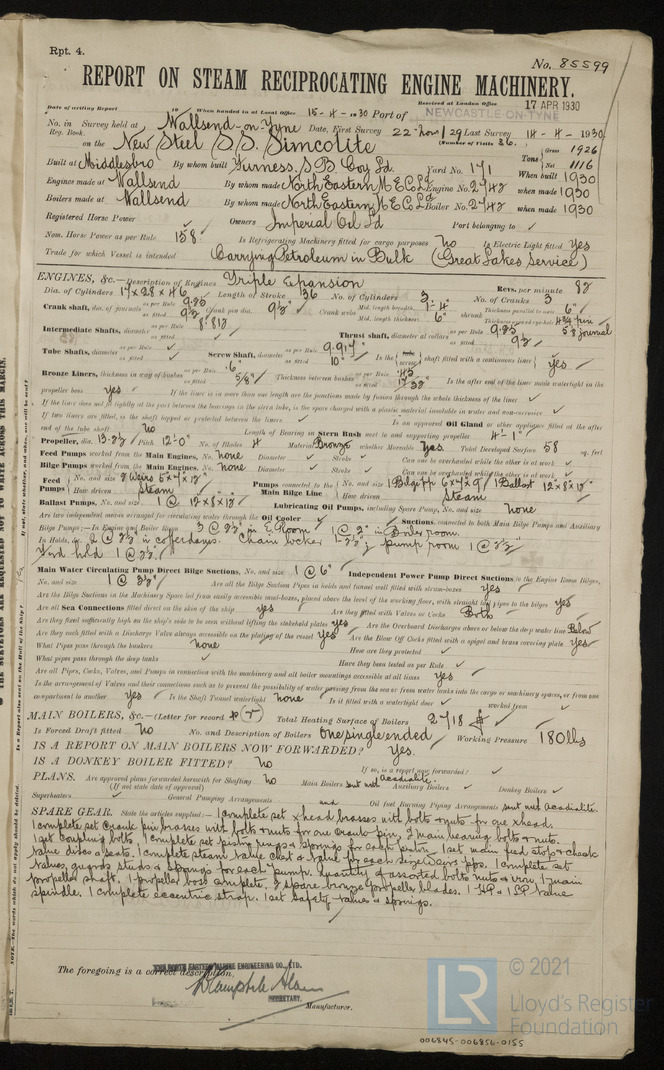 Rpt. 4.
No. 85599
REPORT ON STEAM RECIPROCATING ENGINE MACHINERY.
Received at London Office 17 APR 1930
Date of writing Report 19 When handed in at Local Office 15-4-1930 Port of NEWCASTLE-ON-TYNE
No. in Survey held at Wallsend-on-Tyne Date, First Survey 22 Nov/29 Last Survey 14-4-1930
Reg. Book. (Number of Visits 36.
on the New Steel S.S. Simcolite Tons Gross 1926 Net 1116
Built at Middlesbro By whom built Furness S B Coy Ld Yard No. 171 When built 1930
Engines made at Wallsend By whom made North Eastern M E Co Ld Engine No. 2742 when made 1930
Boilers made at Wallsend By whom made North Eastern M E Co Ld Boiler No. 2742 when made 1930
Registered Horse Power Owners Imperial Oil Ld Port belonging to
Nom. Horse Power as per Rule 158 Is Refrigerating Machinery fitted for cargo purposes No Is Electric Light fitted Yes
Trade for which Vessel is intended Carrying Petroleum in Bulk (Great Lakes Service)
ENGINES, &c.—Description of Engines Triple Expansion Revs. per minute
Dia. of Cylinders 17 x 28 x 46 Length of Stroke 36 No. of Cylinders 3 No. of Cranks 3
Crank shaft, dia. of journals as per Rule 9.35 as fitted Crank pin dia. 9½" Crank webs Mid. length breadth 1-4" Mid. length thickness 6" Thickness parallel to axis 6"
Intermediate Shafts, diameter as per Rule as fitted Thrust shaft, diameter at collars as per Rule 9.35 as fitted 9½
Tube Shafts, diameter as per Rule as fitted Screw Shaft, diameter as per Rule 9.917 as fitted 10" Is the screw shaft fitted with a continuous liner yes
Bronze Liners, thickness in way of bushes as per Rule .6" as fitted 5/8" Thickness between bushes as per Rule .45 as fitted Is the after end of the liner made watertight in the
propeller boss yes If the liner is in more than one length are the junctions made by fusion through the whole thickness of the liner
If the liner does not fit tightly at the part between the bearings in the stern tube, is the space charged with a plastic material insoluble in water and non-corrosive
If two liners are fitted, is the shaft lapped or protected between the liners Is an approved Oil Gland or other appliance fitted at the after
end of the tube shaft No Length of Bearing in Stern Bush next to and supporting propeller 4-1"
Propeller, dia. 13-3½ Pitch 12-0" No. of Blades 4 Material Bronze whether Moveable Yes Total Developed Surface 58 sq. feet
Feed Pumps worked from the Main Engines, No. None Diameter Stroke Can one be overhauled while the other is at work
Bilge Pumps worked from the Main Engines, No. None Diameter Stroke Can one be overhauled while the other is at work
Feed Pumps No. and size 2 Weirs 5x7x12" How driven Steam
Pumps connected to the Main Bilge Line No. and size 1 Bdg. pp 6x4x9 1 Ballast 12x8x12" How driven Steam
Ballast Pumps, No. and size 1 @ 12x8x12" Lubricating Oil Pumps, including Spare Pump, No. and size None
Are two independent means arranged for circulating water through the Oil Cooler Suctions, connected to both Main Bilge Pumps and Auxiliary
Bilge Pumps;—In Engine and Boiler Room 3 @ 2½" in E. Room 1 @ 2" in Boiler room.
In Holds, &c. 2 @ 2½" in cofferdams. Chain locker 1-2½"; Pump room 1 @ 2½"
Ford hold 1 @ 2½"
Main Water Circulating Pump Direct Bilge Suctions, No. and size 1 @ 6" Independent Power Pump Direct Suctions to the Engine Room Bilges,
No. and size 1 @ 3½" Are all the Bilge Suction Pipes in holds and tunnel well fitted with strum-boxes yes
Are the Bilge Suctions in the Machinery Space led from easily accessible mud-boxes, placed above the level of the working floor, with straight tail pipes to the bilges yes
Are all Sea Connections fitted direct on the skin of the ship yes Are they fitted with Valves or Cocks Both
Are they fixed sufficiently high on the ship's side to be seen without lifting the stokehold plates yes Are the Overboard Discharges above or below the deep water line Below
Are they each fitted with a Discharge Valve always accessible on the plating of the vessel yes Are the Blow Off Cocks fitted with a spigot and brass covering plate yes
What Pipes pass through the bunkers none How are they protected
What pipes pass through the deep tanks Have they been tested as per Rule
Are all Pipes, Cocks, Valves, and Pumps in connection with the machinery and all boiler mountings accessible at all times yes
Is the arrangement of Valves and their connections such as to prevent the possibility of water passing from the sea or from water tanks into the cargo or machinery spaces, or from one
compartment to another yes Is the Shaft Tunnel watertight none Is it fitted with a watertight door worked from
MAIN BOILERS, &c.—(Letter for record (r) Total Heating Surface of Boilers 2718
Is Forced Draft fitted No No. and Description of Boilers One single ended Working Pressure 180 lbs
IS A REPORT ON MAIN BOILERS NOW FORWARDED? Yes.
IS A DONKEY BOILER FITTED? No If so, is a report now forwarded?
PLANS. Are approved plans forwarded herewith for Shafting No Main Boilers sent not acadialite. Auxiliary Boilers Donkey Boilers
(If not state date of approval)
Superheaters General Pumping Arrangements and Oil fuel Burning Piping Arrangements sent not acadialite.
SPARE GEAR. State the articles supplied:— 1 complete set x head brasses with bolts & nuts for one xhead.
1 complete set crank pin brasses with bolts & nuts for one crank pin, 2 main bearing bolts & nuts.
1 set coupling bolts, 1 complete set piston rings & springs for each piston 1 set main feed stop & check
valve discs & seats. 1 complete steam valve chest & valve for each size Weirs pps. 1 complete set
valves, guards studs & springs for each pump. Quantity of assorted bolts nuts & iron. 1 main
propeller shaft. 1 propeller boss complete. 2 spare bronze propeller blades. 1 HP & 1 LP valve
spindle. 1 complete eccentric strap. 1 set safety valves & springs.
The foregoing is a correct description,
THE NORTH EASTERN MARINE ENGINEERING CO., LTD.
SECRETARY. Manufacturer.
© 2021
LR Lloyd's Register
Foundation
006845-006856-0155